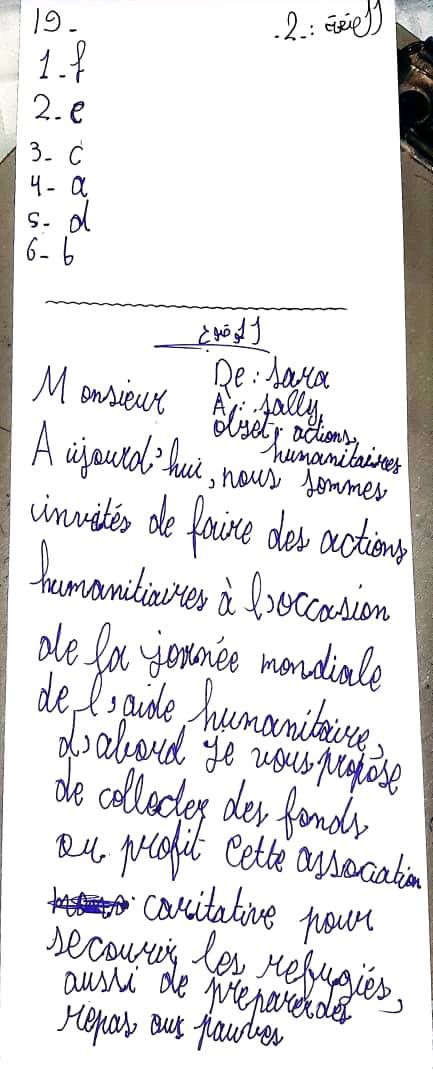 19-
.2.:
1-f
2-e
3- c
4- a
5- d
6- b
الموضوع
De: Sara
Monsieur
A: Sally
objet: actions
humanitaires
Aujourd'hui, nous sommes
invités de faire des actions
humanitiaires à l'occasion
de la journée mondiale
de l'aide humanitaire,
d'abord Je vous propose
de collecter des fonds
au profit Cette association
caritative pour
secourir les refugiés,
aussi de preparer des
repas aux pauvres